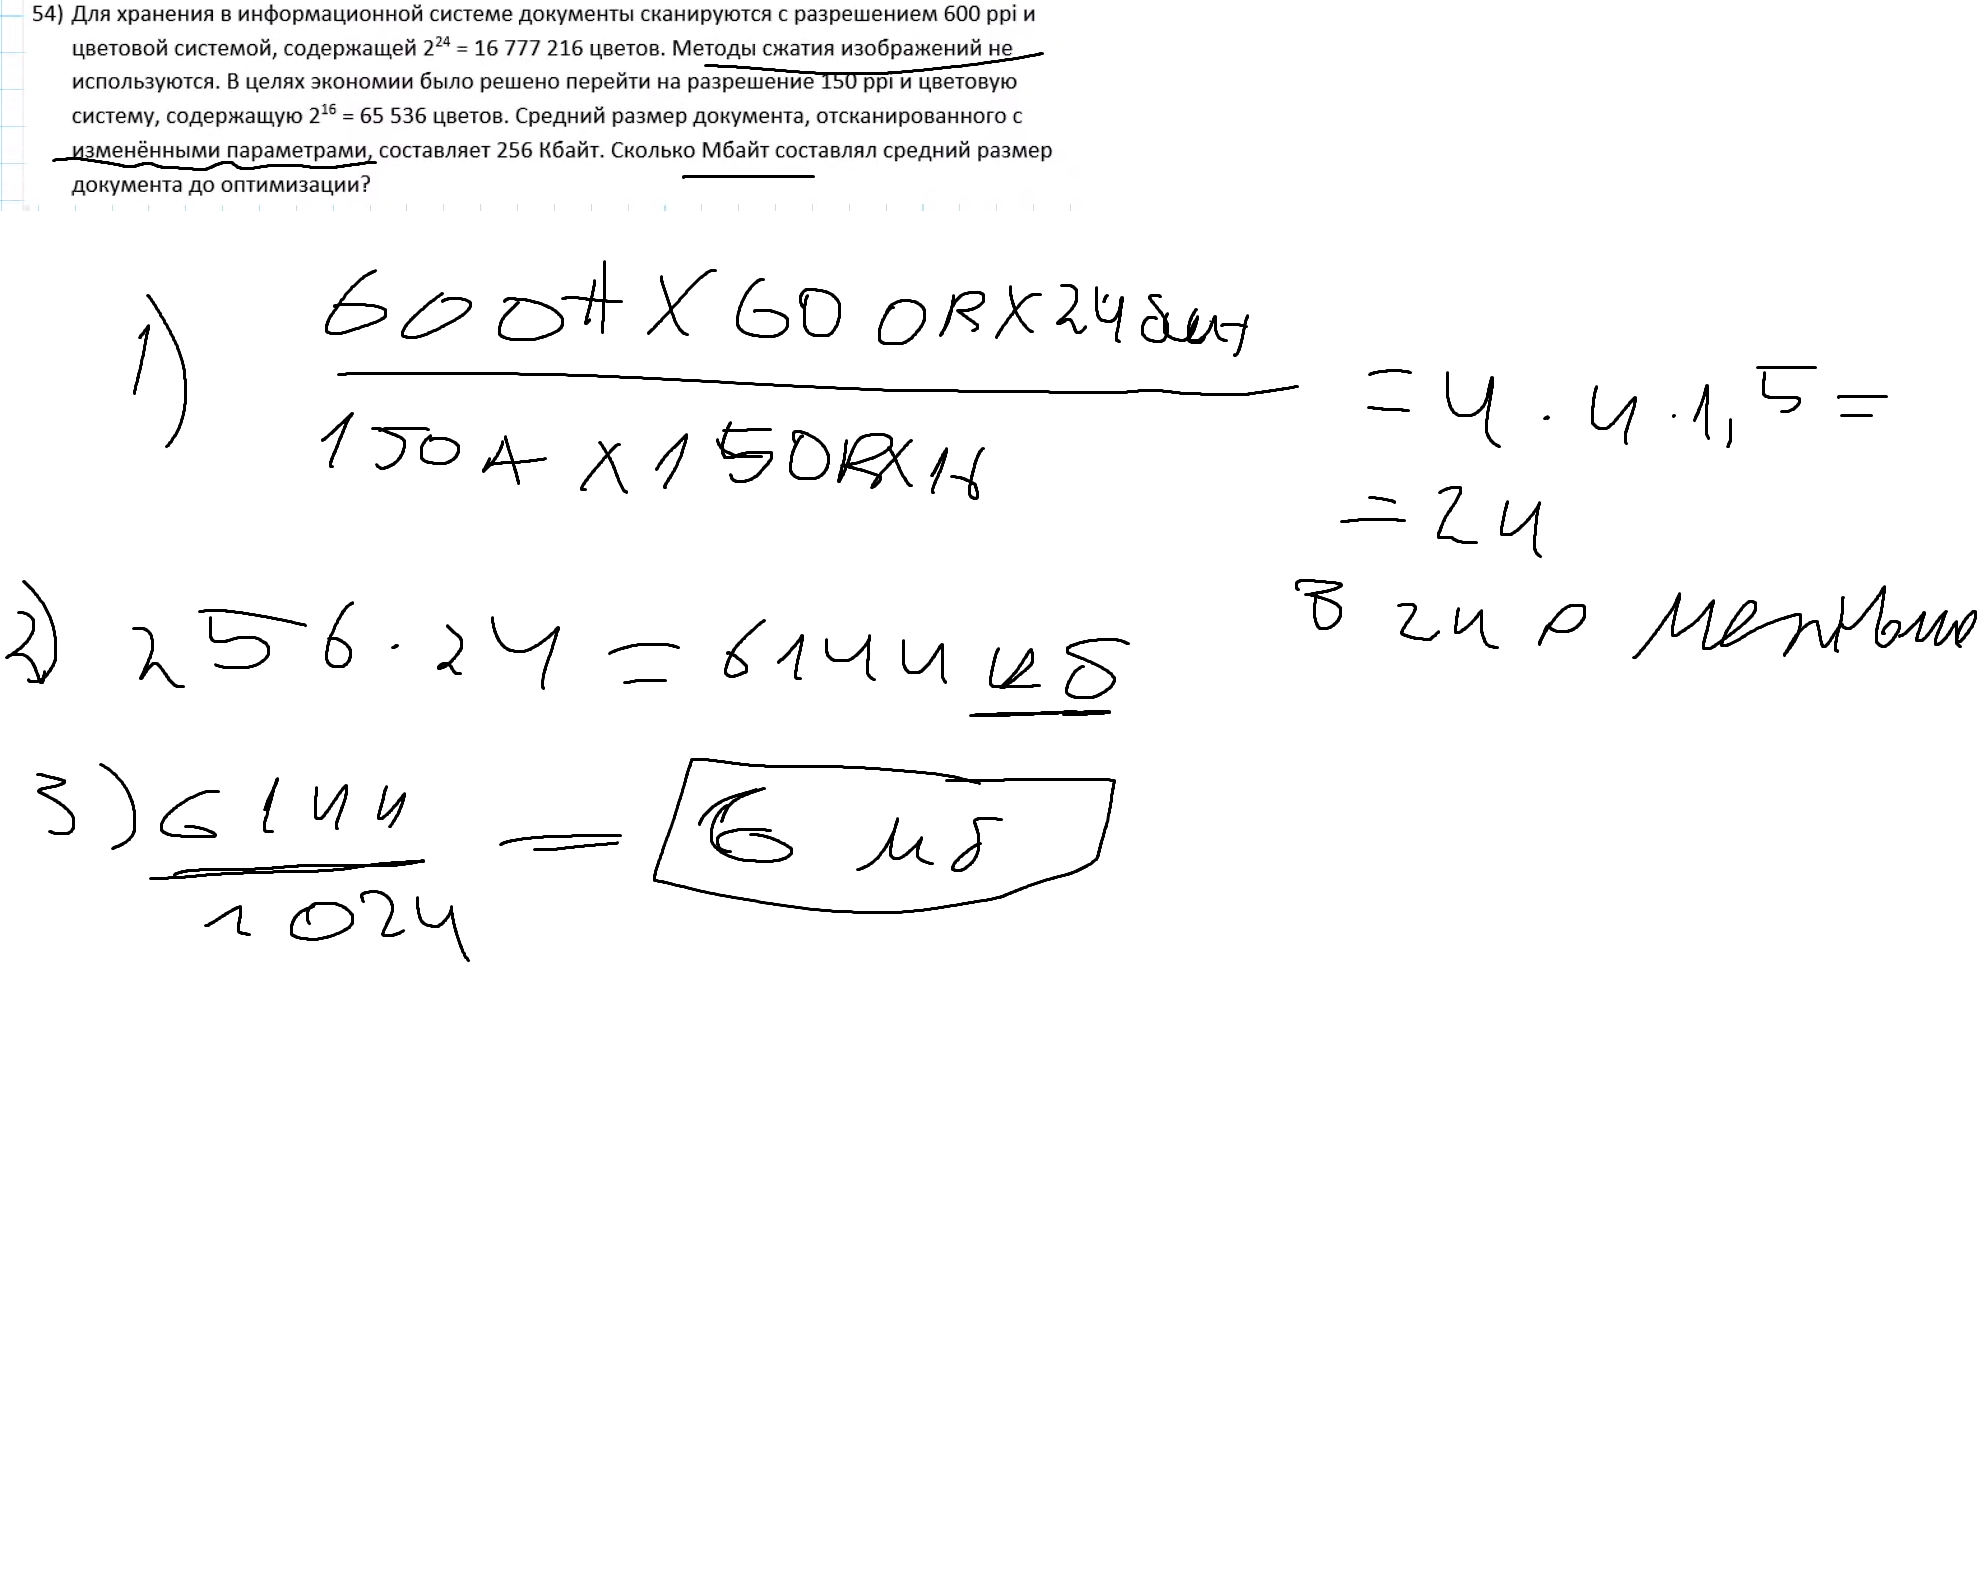 54) Для хранения в информационной системе документы сканируются с разрешением 600 ppi и
цветовой системой, содержащей 2²⁴ = 16 777 216 цветов. Методы сжатия изображений не
используются. В целях экономии было решено перейти на разрешение 150 ppi и цветовую
систему, содержащую 2¹⁶ = 65 536 цветов. Средний размер документа, отсканированного с
изменёнными параметрами, составляет 256 Кбайт. Сколько Мбайт составлял средний размер
документа до оптимизации?
1) 600A X 600B X 24 бит
150A X 150B X 16
= 4 · 4 · 1,5 =
= 24
В 24 р
2) 256 · 24 = 6144 кб
3) 6144
1024
= 6 мб